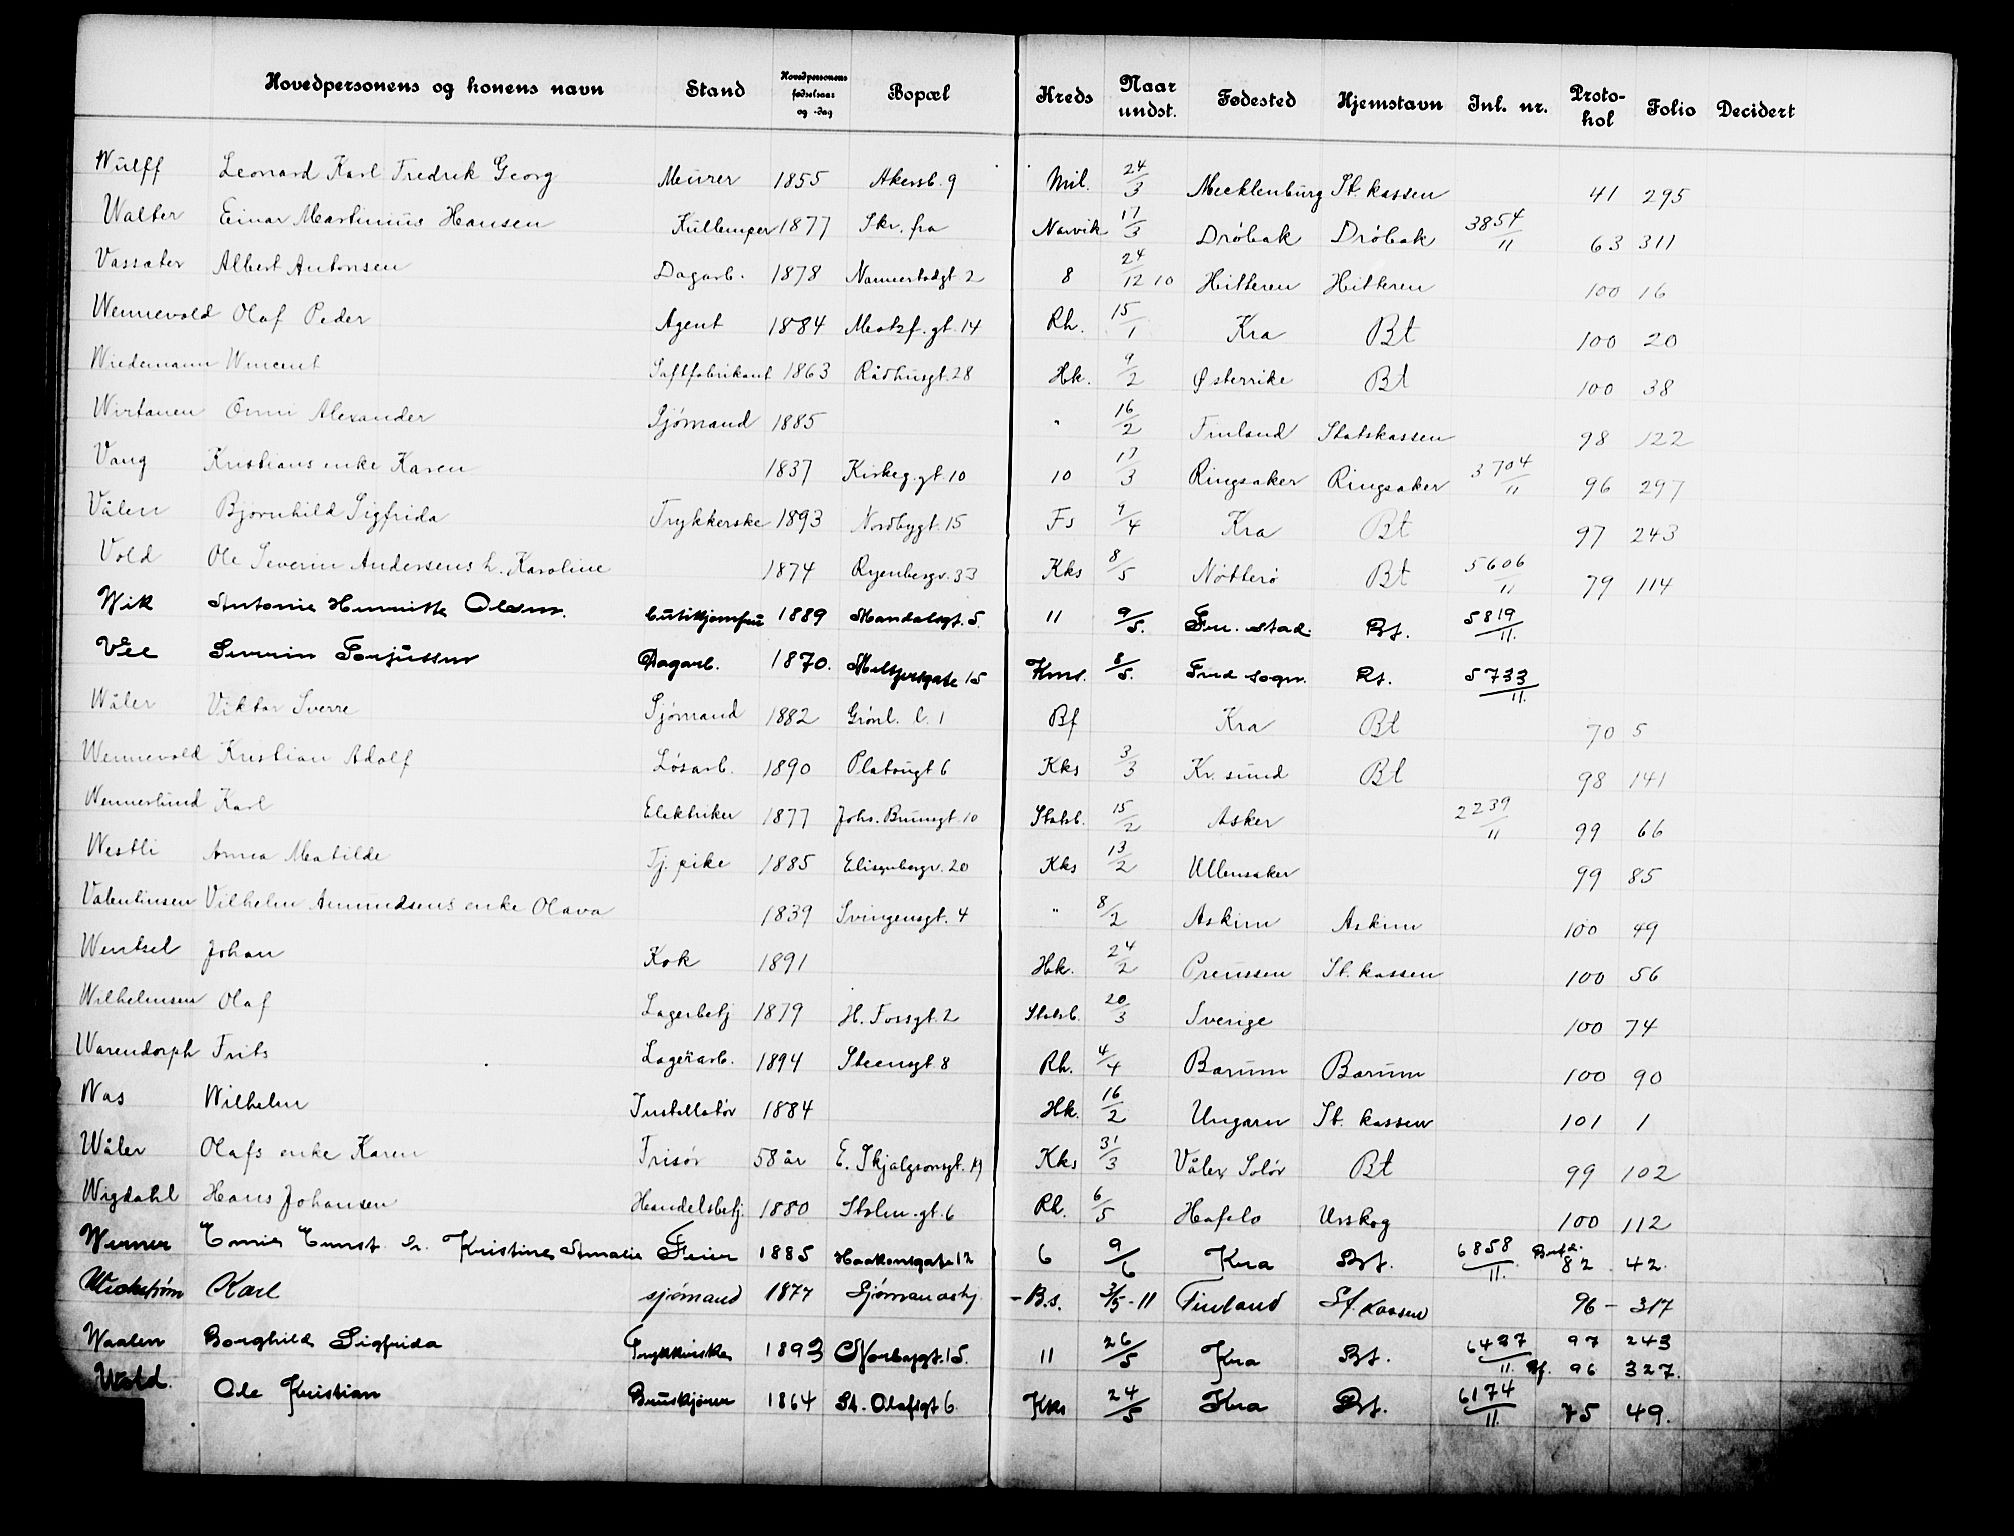 Hovedpersonens og konens navn Stand Hovedpersonens fødselsaar og -dag Bopæl Kreds Naar undst. Fødested Hjemstavn Inl. nr. Proto-kol Folio Decidert
Wulff Leonard Karl Fredrik Georg Murer 1855 Akersb. 9 Mil. 24/3 Mecklenburg St. kassen 41 295
Walter Einar Martinius Hansen Kullemper 1877 Skr. fra Narvik 17/3 Drøbak Drøbak 3854/11 63 311
Vassater Albert Antonsen Dagarb. 1878 Nannestadgt 2 8 24/12 10 Hitteren Hitteren 100 16
Wennevold Olaf Peder Agent 1884 Motzf. gt. 14 Rh. 15/1 Kra Bt 100 20
Wiedemann Wincent Saftfabrikant 1863 Rådhusgt. 28 Hk. 9/2 Østerrike Bt 100 38
Wirtanen Onni Alexander Sjømand 1885 " 16/2 Finland Statskassen 98 122
Vang Kristians enke Karen 1837 Kirkeg. gt. 10 10 17/3 Ringsaker Ringsaker 3704/11 96 297
Vålen Bjørnhild Sigfrida Trykkerske 1893 Nordbygt. 15 Fs 9/4 Kra Bt 97 243
Vold Ole Severin Andersens h. Karoline 1874 Ryenbergv. 33 Kks 8/5 Nøtterø Bt 5606/11 79 114
Wik Antonie Henriette Olsen. butikjomfru 1889 Mandalsgt. 5. 11 9/5. Fr. stad. Bt. 5819/11.
Vee Severin Torjussen Dagarb. 1870. Meltzersgate 15 Kms. 8/5. Bt. 5733/11.
Wåler Viktor Sverre Sjømand 1882 Grønl. l. 1 Bf Kra Bt 70 5
Wennevold Kristian Adolf Løsarb. 1890 Platougt 6 Kks 3/3 Kr. sund Bt 98 141
Wennerlund Karl Elektriker 1877 Johs. Brunsgt. 10 Statsb. 15/2 Asker 2239/11 99 66
Westli Anna Matilde Tj. pike 1885 Elisenbergv. 20 Kks 13/2 Ullensaker 99 85
Valentinsen Vilhelm Amundsens enke Olava 1839 Svingensgt. 4 " 8/2 Askim Askim 100 49
Wentzel Johan Kok 1891 Hk. 24/2 Preussen St. kassen 100 56
Wilhelmsen Olaf Lagerbetj 1879 H. Fossgt. 2 Statsb. 20/3 Sverige 100 74
Warendorph Frits Lagerarb. 1894 Steensgt. 8 Rh. 4/4 Bærum Bærum 100 90
Was Wilhelm Installatør 1884 Hk. 16/2 Ungarn St. kassen 101 1
Wåler Olafs enke Karen Frisør 58 år E. Skjalgsonsgt. Kks 31/3 Våler, Solør Bt 99 102
Wigdahl Hans Johansen Handelsbetj. 1880 Stolm. gt. 6 Rh. 6/5 Hafslo Urskog 100 112
Werner Ernst h. Kristine Amalie Feier 1885 Haakonsgate 12 6 9/6 Kra Bt. 6858/11. 82 42.
Wickstrøm Karl sjømand 1877 - B.s. 3/5 - 11 Finland St. kassen 96 - 317
Waalen Borghild Sigfrida Trykkerske 1893 Nordbygt. 15. 11 26/5 Kra Bt. 6437/11. 97 243
Bf. 96 327.
Wold. Ole Kristian Bruskjører 1864 St. Olafsgt 6. Kks 24/5 Kra Bt. 6174/11. 75 49.